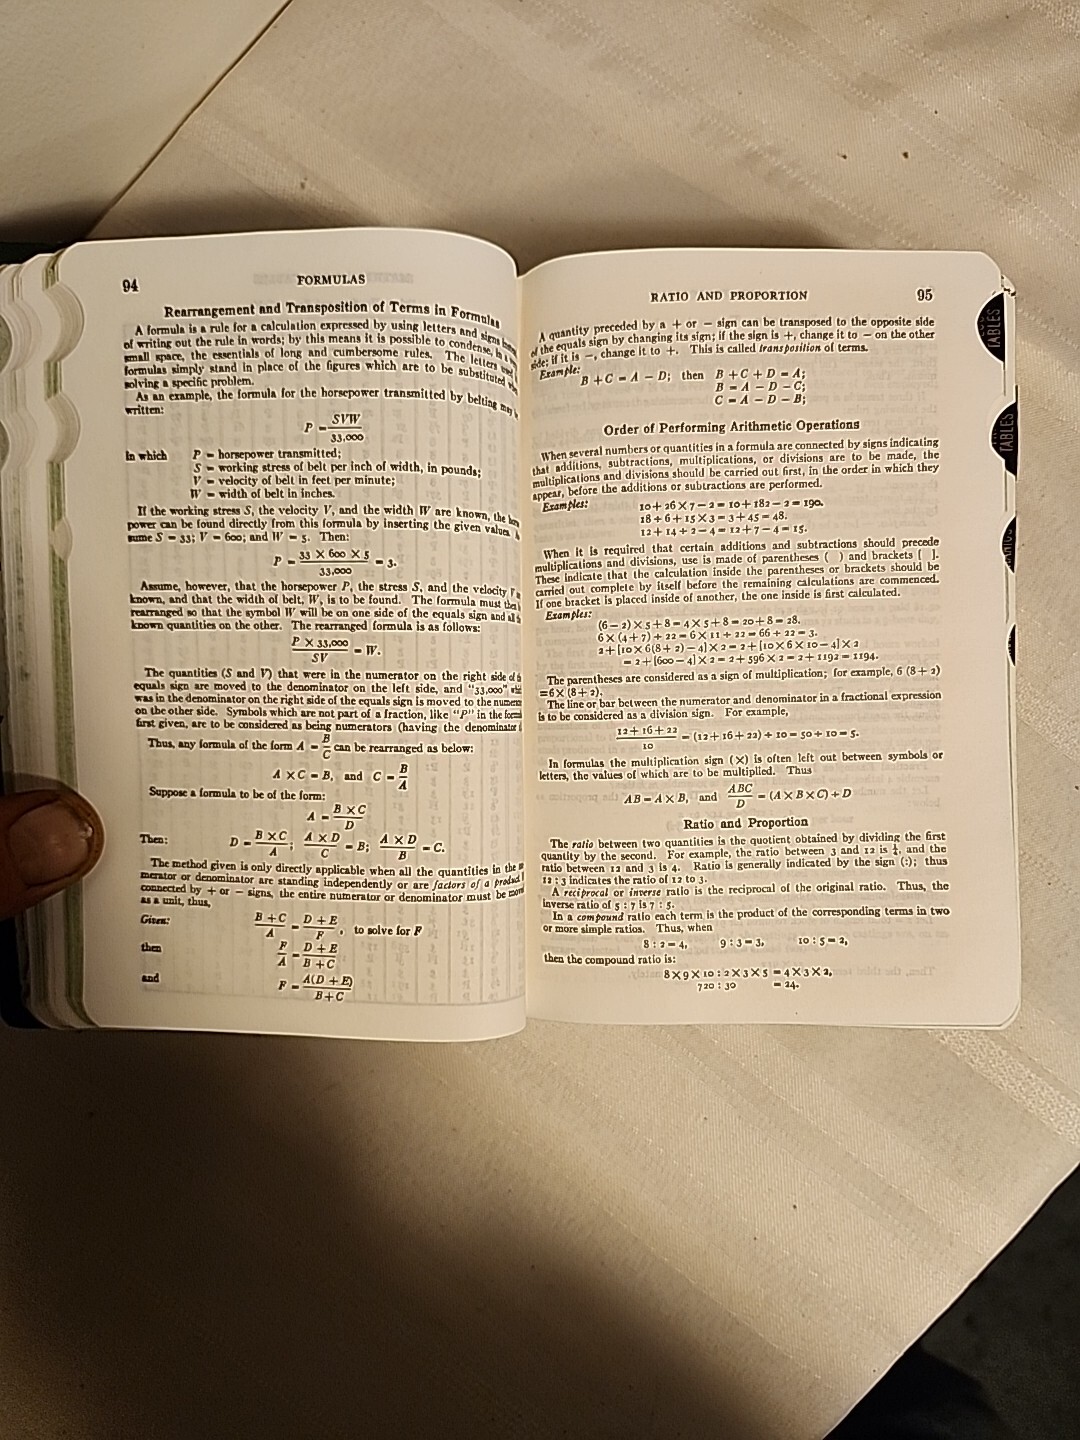 94 FORMULAS
Rearrangement and Transposition of Terms in Formulas
A formula is a rule for a calculation expressed by using letters and signs
of writing out the rule in words; by this means it is possible to condense, in a
small space, the essentials of long and cumbersome rules. The letters used
formulas simply stand in place of the figures which are to be substituted
solving a specific problem.
As an example, the formula for the horsepower transmitted by belting may
written:
P = SVW / 33,000
In which P = horsepower transmitted;
S = working stress of belt per inch of width, in pounds;
V = velocity of belt in feet per minute;
W = width of belt in inches.
If the working stress S, the velocity V, and the width W are known, the
power can be found directly from this formula by inserting the given values.
sume S = 33; V = 600; and W = 5. Then:
P = 33 × 600 × 5 / 33,000 = 3.
Assume, however, that the horsepower P, the stress S, and the velocity V
known, and that the width of belt, W, is to be found. The formula must then
rearranged so that the symbol W will be on one side of the equals sign and all
known quantities on the other. The rearranged formula is as follows:
P × 33,000 / SV = W.
The quantities (S and V) that were in the numerator on the right side of
equals sign are moved to the denominator on the left side, and "33,000"
was in the denominator on the right side of the equals sign is moved to the
on the other side. Symbols which are not part of a fraction, like "P" in the
first given, are to be considered as being numerators (having the denominator
Thus, any formula of the form A = B/C can be rearranged as below:
A × C = B, and C = B/A
Suppose a formula to be of the form:
A = B × C / D
Then: D = B × C / A; A × D / C = B; A × D / B = C.
The method given is only directly applicable when all the quantities in the
merator or denominator are standing independently or are factors of a product.
connected by + or − signs, the entire numerator or denominator must be
as a unit, thus,
Given: B + C / A = D + E / F, to solve for F
then F / A = D + E / B + C
and F = A(D + E) / B + C
RATIO AND PROPORTION 95
A quantity preceded by a + or − sign can be transposed to the opposite side
of the equals sign by changing its sign; if the sign is +, change it to − on the other
side; if it is −, change it to +. This is called transposition of terms.
Example:
B + C = A − D; then B + C + D = A;
B = A − D − C;
C = A − D − B;
Order of Performing Arithmetic Operations
When several numbers or quantities in a formula are connected by signs indicating
that additions, subtractions, multiplications, or divisions are to be made, the
multiplications and divisions should be carried out first, in the order in which they
appear, before the additions or subtractions are performed.
Examples:
10 + 26 × 7 − 2 = 10 + 182 − 2 = 190.
18 ÷ 6 + 15 × 3 = 3 + 45 = 48.
12 + 14 ÷ 2 − 4 = 12 + 7 − 4 = 15.
When it is required that certain additions and subtractions should precede
multiplications and divisions, use is made of parentheses ( ) and brackets [ ].
These indicate that the calculation inside the parentheses or brackets should be
carried out complete by itself before the remaining calculations are commenced.
If one bracket is placed inside of another, the one inside is first calculated.
Examples:
(6 − 2) × 5 + 8 = 4 × 5 + 8 = 20 + 8 = 28.
6 × (4 + 7) ÷ 22 = 6 × 11 ÷ 22 = 66 ÷ 22 = 3.
2 + [10 × 6(8 + 2) − 4] × 2 = 2 + [10 × 6 × 10 − 4] × 2
= 2 + [600 − 4] × 2 = 2 + 596 × 2 = 2 + 1192 = 1194.
The parentheses are considered as a sign of multiplication; for example, 6 (8 + 2)
= 6 × (8 + 2).
The line or bar between the numerator and denominator in a fractional expression
is to be considered as a division sign. For example,
12 + 16 + 22 / 10 = (12 + 16 + 22) ÷ 10 = 50 ÷ 10 = 5.
In formulas the multiplication sign (×) is often left out between symbols or
letters, the values of which are to be multiplied. Thus
AB = A × B, and ABC / D = (A × B × C) ÷ D
Ratio and Proportion
The ratio between two quantities is the quotient obtained by dividing the first
quantity by the second. For example, the ratio between 3 and 12 is ¼, and the
ratio between 12 and 3 is 4. Ratio is generally indicated by the sign (:); thus
12 : 3 indicates the ratio of 12 to 3.
A reciprocal or inverse ratio is the reciprocal of the original ratio. Thus, the
inverse ratio of 5 : 7 is 7 : 5.
In a compound ratio each term is the product of the corresponding terms in two
or more simple ratios. Thus, when
8 : 2 = 4, 9 : 3 = 3, 10 : 5 = 2,
then the compound ratio is:
8 × 9 × 10 : 2 × 3 × 5 = 4 × 3 × 2,
720 : 30 = 24.
TABLES
TABLES